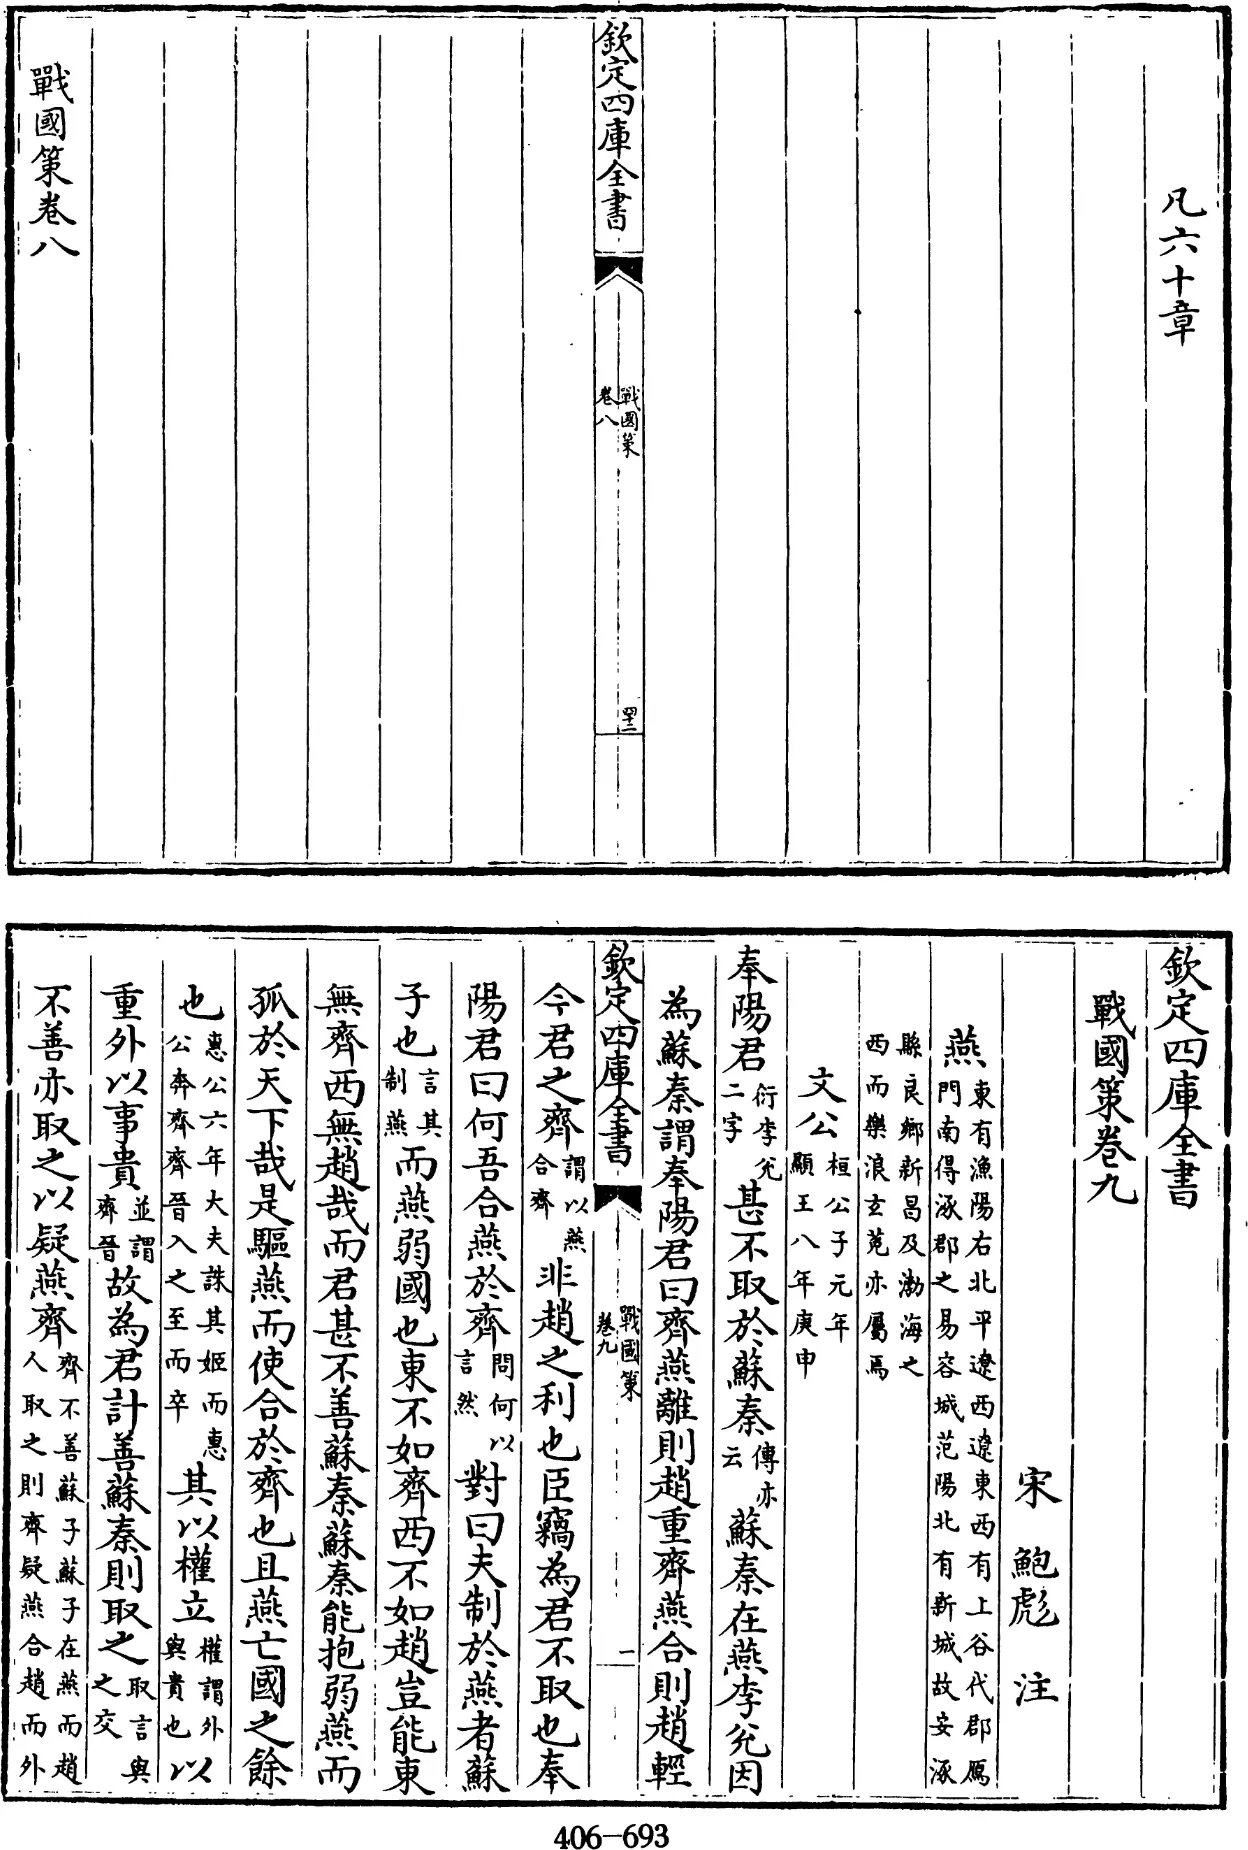 凡六十章
欽定四庫全書
戰國策
卷八
四十二
戰國策卷八
欽定四庫全書
戰國策卷九
宋 鮑彪 注
燕東有漁陽右北平遼西遼東西有上谷代郡鴈門南得涿郡之易容城范陽北有新城故安涿
縣良鄉新昌及渤海之西而樂浪玄菟亦屬焉
文公桓公子元年顯王八年庚申
奉陽君衍李兊二字甚不取於蘇秦傳亦云蘇秦在燕李兊因
為蘇秦謂奉陽君曰齊燕離則趙重齊燕合則趙輕
欽定四庫全書
戰國策
卷九
一
今君之齊謂以燕合齊非趙之利也臣竊為君不取也奉
陽君曰何吾合燕於齊問何以言然對曰夫制於燕者蘇
子也言其制燕而燕弱國也東不如齊西不如趙豈能東
無齊西無趙哉而君甚不善蘇秦蘇秦能抱弱燕而
孤於天下哉是驅燕而使合於齊也且燕亡國之餘
也惠公六年大夫誅其姬而惠公奔齊齊晉入之至而卒其以權立權謂外與貴也以
重外以事貴並謂齊晉故為君計善蘇秦則取之取言與之交
不善亦取之以疑燕齊齊不善蘇子蘇子在燕而趙人取之則齊疑燕合趙而外
406-693